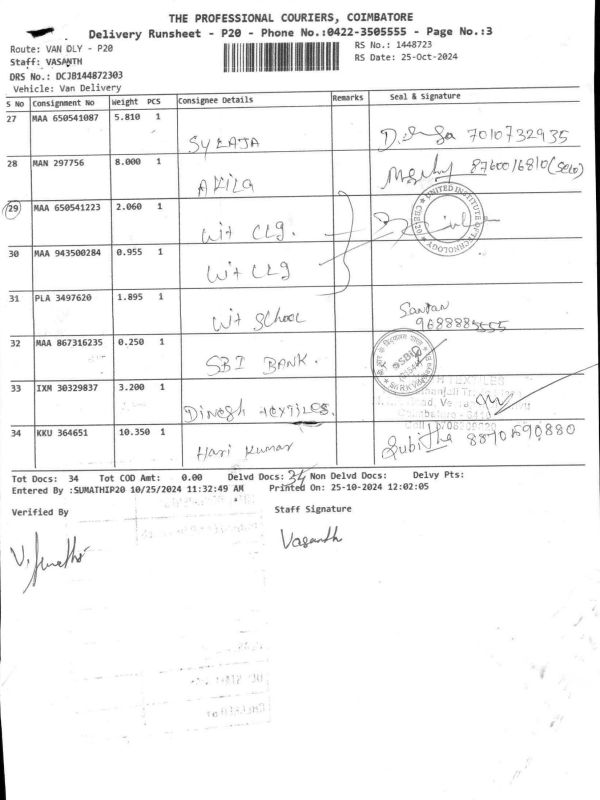 THE PROFESSIONAL COURIERS, COIMBATORE
Delivery Runsheet - P20 - Phone No.:0422-3505555 - Page No.:3
Route: VAN DLY - P20
RS No.: 1448723
Staff: VASANTH
RS Date: 25-Oct-2024
DRS No.: DCJB144872303
Vehicle: Van Delivery
S No Consignment No Weight PCS Consignee Details Remarks Seal & Signature
27 MAA 650541087 5.810 1
7010732935
28 MAN 297756 8.000 1 AKILA
29 MAA 650541223 2.060 1 Uit CLG.
UNITED INSTITUTE OF TECHNOLOGY
30 MAA 943500284 0.955 1 Uit CLG
31 PLA 3497620 1.895 1 Uit School
32 MAA 867316235 0.250 1 SBI BANK.
SBI
33 IXM 30329837 3.200 1 Dinesh textiles.
34 KKU 364651 10.350 1 Hari Kumar
Tot Docs: 34 Tot COD Amt: 0.00 Delvd Docs: 34 Non Delvd Docs: Delvy Pts:
Entered By :SUMATHIP20 10/25/2024 11:32:49 AM Printed On: 25-10-2024 12:02:05
Verified By
Staff Signature
Vasanth